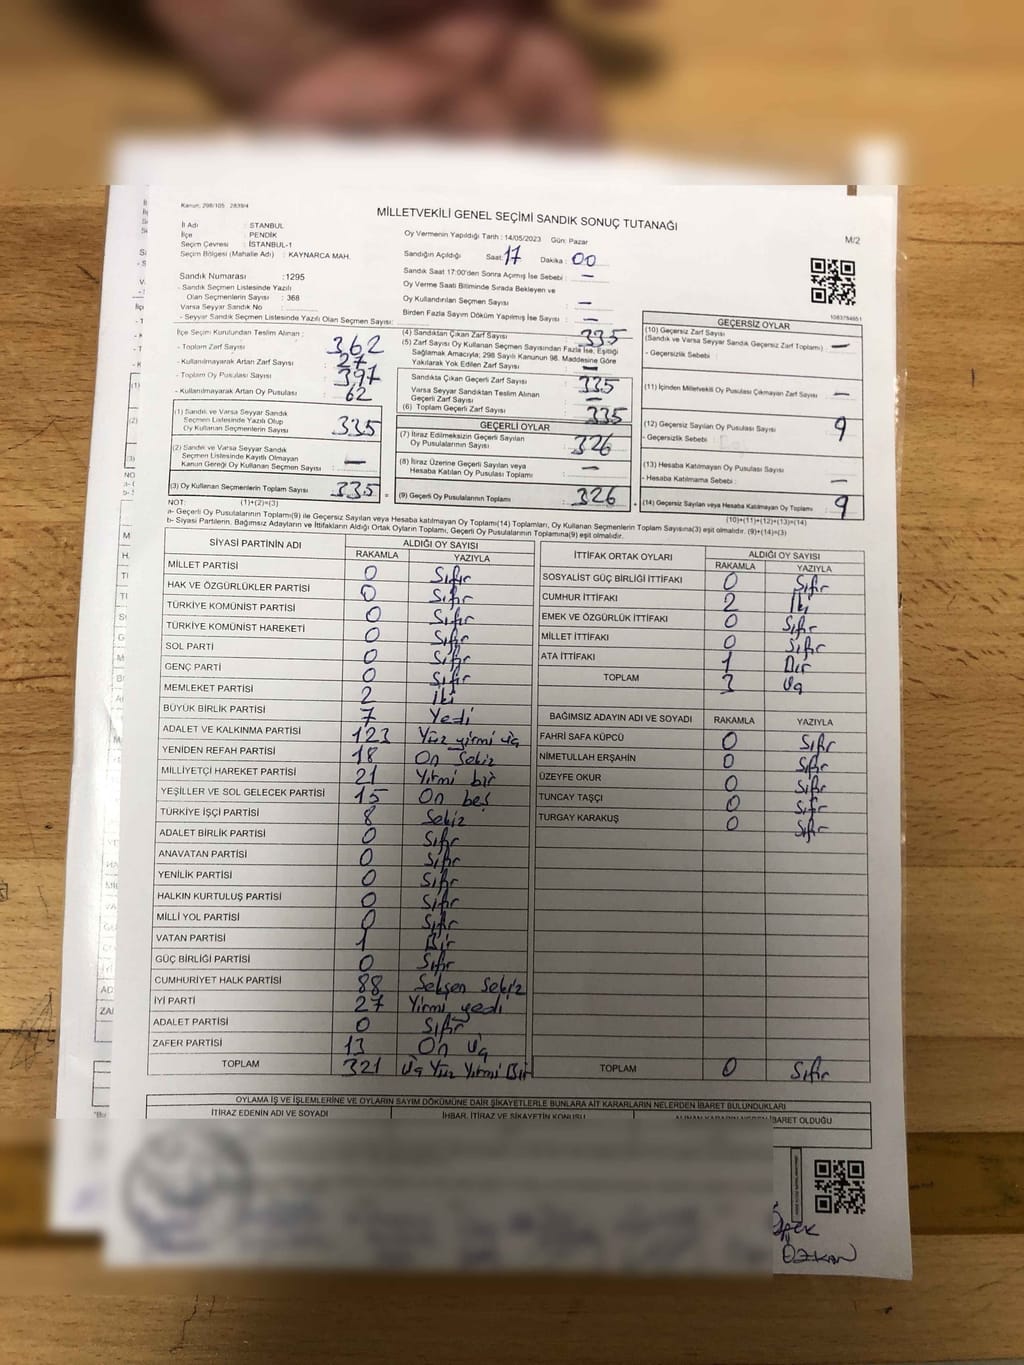 Kanun, 298/105 , 2839/4
MİLLETVEKİLİ GENEL SEÇİMİ SANDIK SONUÇ TUTANAĞI
M/2
İl Adı : STANBUL
İlçe : PENDİK
Seçim Çevresi : İSTANBUL-1
Seçim Bölgesi (Mahalle Adı) : KAYNARCA MAH.
Sandık Numarası :1295
- Sandık Seçmen Listesinde Yazılı
Olan Seçmenlerin Sayısı : 368
Varsa Seyyar Sandık No :
- Seyyar Sandık Listesinde Yazılı Olan Seçmen Sayısı:
Oy Vermenin Yapıldığı Tarih : 14/05/2023 Gün: Pazar
Sandığın Açıldığı Saat: 17 Dakika : 00
Sandık Saat 17:00'den Sonra Açımış İse Sebebi : —
Oy Verme Saati Bitiminde Sırada Bekleyen ve
Oy Kullandırılan Seçmen Sayısı : —
Birden Fazla Sayım Döküm Yapılmış İse Sayısı : —
1083784651
İlçe Seçim Kurulundan Teslim Alınan ;
- Toplam Zarf Sayısı : 362
- Kullanılmayarak Artan Zarf Sayısı : 27
- Toplam Oy Pusulası Sayısı : 397
- Kullanılmayarak Artan Oy Pusulası : 62
(1) Sandık ve Varsa Seyyar Sandık
Seçmen Listesinde Yazılı Olup
Oy Kullanan Seçmenlerin Sayısı : 335
(2) Sandık ve Varsa Seyyar Sandık
Seçmen Listesinde Kayıtlı Olmayan
Kanun Gereği Oy Kullanan Seçmen Sayısı : —
(3) Oy Kullanan Seçmenlerin Toplam Sayısı : 335
(4) Sandıktan Çıkan Zarf Sayısı : 335
(5) Zarf Sayısı Oy Kullanan Seçmen Sayısından Fazla İse, Eşitliği
Sağlamak Amacıyla; 298 Sayılı Kanunun 98. Maddesine Göre
Yakılarak Yok Edilen Zarf Sayısı : —
Sandıkta Çıkan Geçerli Zarf Sayısı : 335
Varsa Seyyar Sandıktan Teslim Alınan
Geçerli Zarf Sayısı : —
(6) Toplam Geçerli Zarf Sayısı : 335
GEÇERLİ OYLAR
(7) İtiraz Edilmeksizin Geçerli Sayılan
Oy Pusulalarının Sayısı : 326
(8) İtiraz Üzerine Geçerli Sayılan veya
Hesaba Katılan Oy Pusulası Toplamı : —
= (9) Geçerli Oy Pusulalarının Toplamı : 326
GEÇERSİZ OYLAR
(10) Geçersiz Zarf Sayısı
(Sandık ve Varsa Seyyar Sandık Geçersiz Zarf Toplamı) : —
- Geçersizlik Sebebi :
(11) İçinden Milletvekili Oy Pusulası Çıkmayan Zarf Sayısı : —
(12) Geçersiz Sayılan Oy Pusulası Sayısı : 9
- Geçersizlik Sebebi :
(13) Hesaba Katılmayan Oy Pusulası Sayısı
- Hesaba Katılmama Sebebi : —
+ (14) Geçersiz Sayılan veya Hesaba Katılmayan Oy Toplamı : 9
NOT: (1)+(2)=(3) (10)+(11)+(12)+(13)=(14)
a- Geçerli Oy Pusulalarının Toplamı(9) ile Geçersiz Sayılan veya Hesaba katılmayan Oy Toplamı(14) Toplamları, Oy Kullanan Seçmenlerin Toplam Sayısına(3) eşit olmalıdır. (9)+(14)=(3)
b- Siyasi Partilerin, Bağımsız Adayların ve İttifakların Aldığı Ortak Oyların Toplamı, Geçerli Oy Pusulalarının Toplamına(9) eşit olmalıdır.
SİYASİ PARTİNİN ADI ALDIĞI OY SAYISI
RAKAMLA YAZIYLA
MİLLET PARTİSİ 0 Sıfır
HAK VE ÖZGÜRLÜKLER PARTİSİ 0 Sıfır
TÜRKİYE KOMÜNİST PARTİSİ 0 Sıfır
TÜRKİYE KOMÜNİST HAREKETİ 0 Sıfır
SOL PARTİ 0 Sıfır
GENÇ PARTİ 0 Sıfır
MEMLEKET PARTİSİ 2 İki
BÜYÜK BİRLİK PARTİSİ 7 Yedi
ADALET VE KALKINMA PARTİSİ 123 Yüz yirmi üç
YENİDEN REFAH PARTİSİ 18 On Sekiz
MİLLİYETÇİ HAREKET PARTİSİ 21 Yirmi bir
YEŞİLLER VE SOL GELECEK PARTİSİ 15 On beş
TÜRKİYE İŞÇİ PARTİSİ 8 Sekiz
ADALET BİRLİK PARTİSİ 0 Sıfır
ANAVATAN PARTİSİ 0 Sıfır
YENİLİK PARTİSİ 0 Sıfır
HALKIN KURTULUŞ PARTİSİ 0 Sıfır
MİLLİ YOL PARTİSİ 0 Sıfır
VATAN PARTİSİ 1 Bir
GÜÇ BİRLİĞİ PARTİSİ 0 Sıfır
CUMHURİYET HALK PARTİSİ 88 Seksen Sekiz
İYİ PARTİ 27 Yirmi yedi
ADALET PARTİSİ 0 Sıfır
ZAFER PARTİSİ 13 On üç
TOPLAM 321 Üç Yüz Yirmi Bir
İTTİFAK ORTAK OYLARI ALDIĞI OY SAYISI
RAKAMLA YAZIYLA
SOSYALİST GÜÇ BİRLİĞİ İTTİFAKI 0 Sıfır
CUMHUR İTTİFAKI 2 İki
EMEK VE ÖZGÜRLÜK İTTİFAKI 0 Sıfır
MİLLET İTTİFAKI 0 Sıfır
ATA İTTİFAKI 1 Bir
TOPLAM 3 Üç
BAĞIMSIZ ADAYIN ADI VE SOYADI RAKAMLA YAZIYLA
FAHRİ SAFA KÜPCÜ 0 Sıfır
NİMETULLAH ERŞAHİN 0 Sıfır
ÜZEYFE OKUR 0 Sıfır
TUNCAY TAŞÇI 0 Sıfır
TURGAY KARAKUŞ 0 Sıfır
TOPLAM 0 Sıfır
OYLAMA İŞ VE İŞLEMLERİNE VE OYLARIN SAYIM DÖKÜMÜNE DAİR ŞİKAYETLERLE BUNLARA AİT KARARLARIN NELERDEN İBARET BULUNDUKLARI
İTİRAZ EDENİN ADI VE SOYADI İHBAR, İTİRAZ VE ŞİKAYETİN KONUSU ALINAN KARARIN NEDEN İBARET OLDUĞU
ÖZKAN